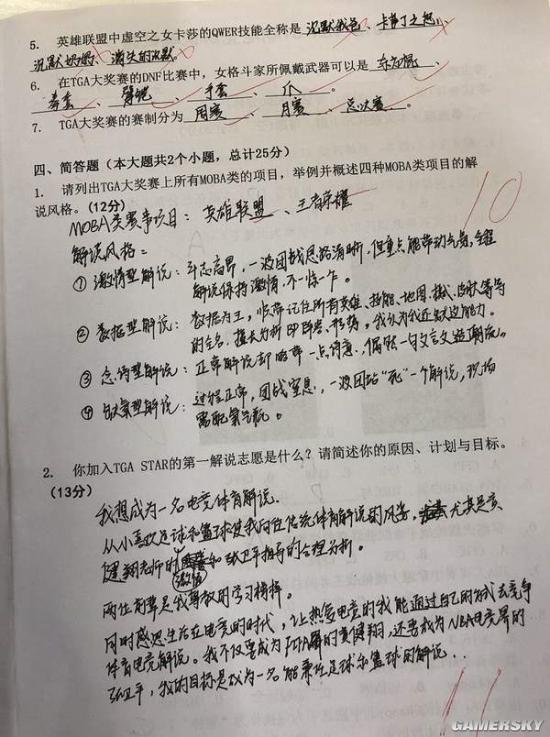 5. 英雄联盟中虚空之女卡莎的QWER技能全称是 沉默我色、卡莎丁之怒、
沉默奶奶、消失的沉默。
6. 在TGA大奖赛的DNF比赛中，女格斗家所佩戴武器可以是 东方棍、
拳套、臂铠、手套、爪。
7. TGA大奖赛的赛制分为 周赛、月赛、总决赛。
四、简答题（本大题共2个小题，总计25分）
1. 请列出TGA大奖赛上所有MOBA类的项目，举例并概述四种MOBA类项目的解
说风格。(12分)
MOBA类赛事项目：英雄联盟、王者荣耀
10
解说风格：
① 激情型解说：斗志高昂，一波团战思路清晰，但重点能带动气氛，全程
解说保持激情，不一惊一乍。
② 数据型解说：数据为王，临阵记住所有英雄、技能、地图、模式、皮肤等等
的全名，擅长分析即阵容、形势。我认为我还欠缺这能力。
③ 念诗型解说：正常解说却略带一点诗意，偶然一句文言文造潮流。
④ 过程正常，团战窒息，一波团站“死”一个解说，现场
需配氧气瓶。
2. 你加入TGA STAR的第一解说志愿是什么？请简述你的原因、计划与目标。
(13分)
我想成为一名电竞体育解说.
从小喜欢足球和篮球使我向往传统体育解说的风采，尤其是黄
健翔老师的激情和张卫平指导的合理分析。
两位前辈是我尊敬的学习榜样。
同时感恩生活在电竞的时代，让热爱电竞的我能通过自己的方式去竞争
体育电竞解说。我不仅要成为FIFA界的黄健翔，还要成为NBA电竞界的
张卫平，我的目标是成为一名能兼任足球和篮球的解说...
11
GAMERSKY